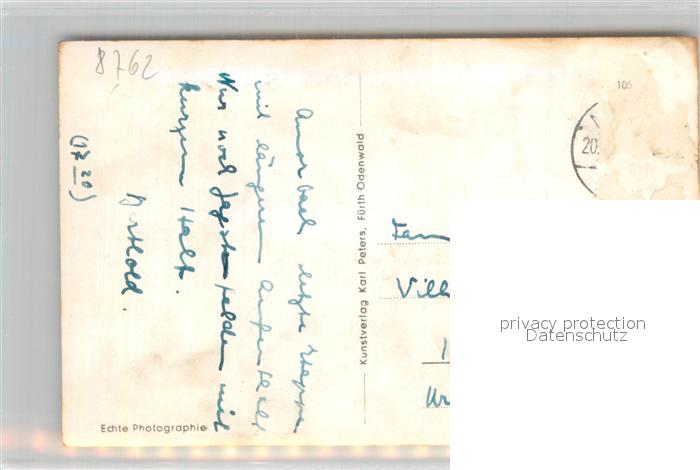 8762
105
20.
Amorbach letzte Etappe
mit längerem Aufenthalt
Nur noch mit
kurzem Halt.
Berthold.
(17 20)
Kunstverlag Karl Peters, Fürth Odenwald
Echte Photographie
Fam
Vill
privacy protection
Datenschutz